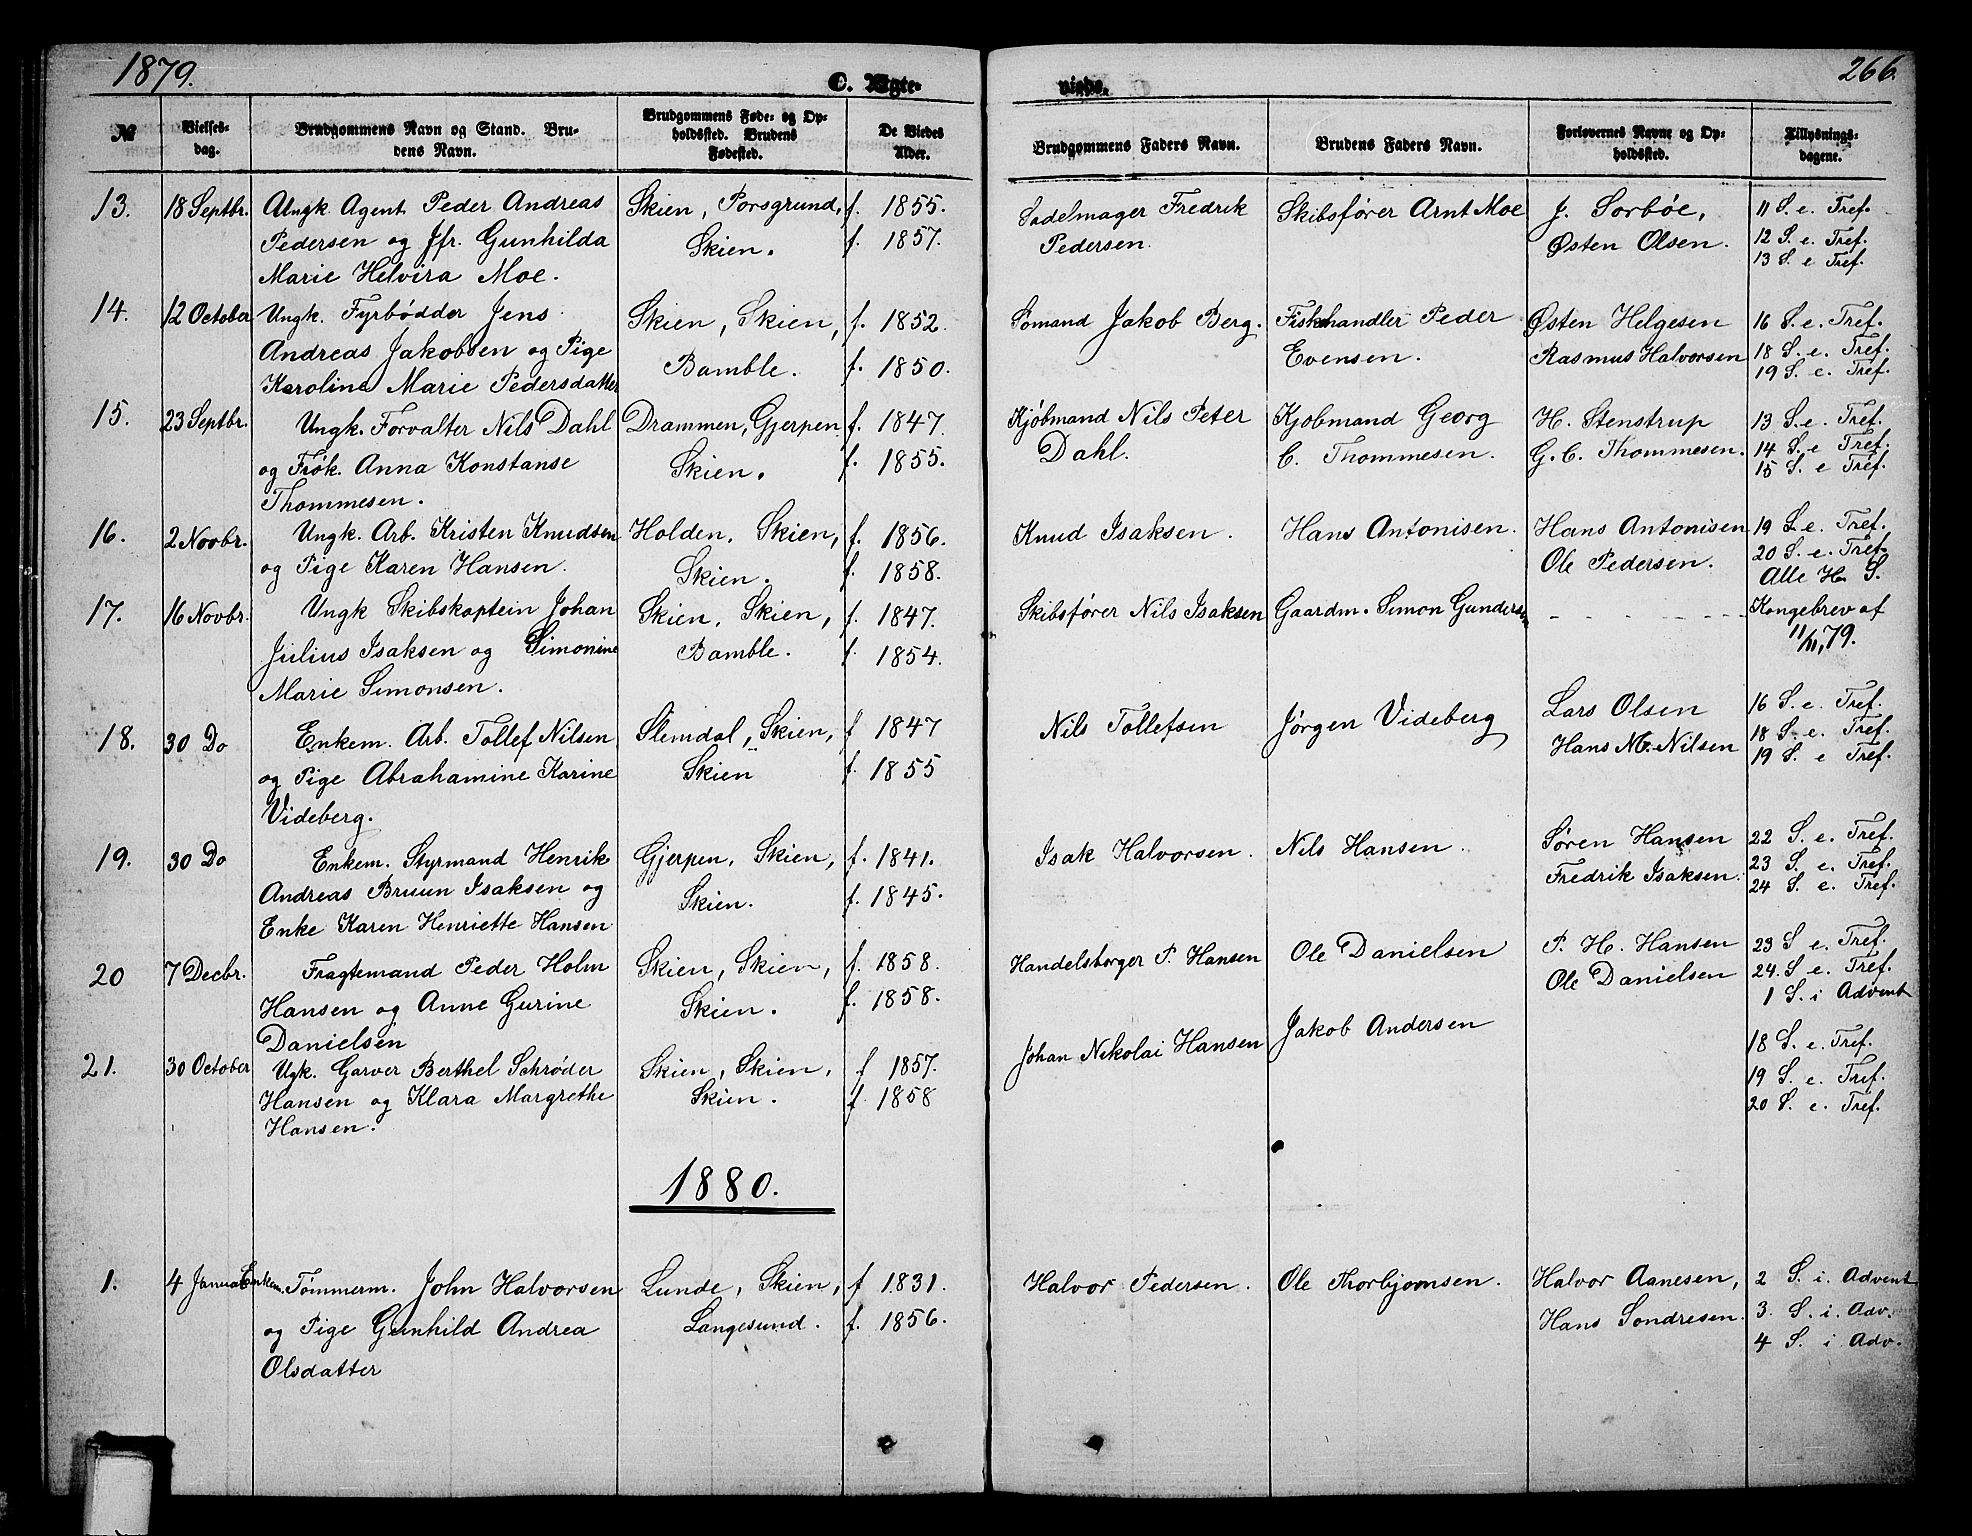 1879.
C. Ægte-
viede.
266.
№
Vielses-
dag.
Brudgommens Navn og Stand. Bru-
dens Navn.
Brudgommens Føde- og Op-
holdssted. Brudens
Fødested.
De Viedes
Alder.
Brudgommens Faders Navn.
Brudens Faders Navn.
Forlovernes Navne og Op-
holdssted.
Tillysnings-
dagene.
13.
18 Septbr.
Ungk. Agent Peder Andreas
Pedersen og Jfr. Gunhilda
Marie Helvira Moe.
Skien, Porsgrund,
Skien.
f. 1855.
f. 1857.
Sadelmager Fredrik
Pedersen.
Skibsfører Arnt Moe
J. Sorbøe,
Østen Olsen.
11 S. e. Tref.
12 S. e. Tref.
13 S. e Tref.
14.
12 October
Ungk. Fyrbødder Jens
Andreas Jakobsen og Pige
Karoline Marie Pedersdatter
Skien, Skien,
Bamble.
f. 1852.
f. 1850.
Somand Jakob Berg.
Fiskehandler Peder
Evensen.
Østen Helgesen
Rasmus Halvorsen
16 S. e. Tref.
18 S. e. Tref.
19 S. e. Tref.
15.
23 Septbr.
Ungk. Forvalter Nils Dahl
og Frøk. Anna Konstanse
Thommesen.
Drammen, Gjerpen
Skien.
f. 1847.
f. 1855.
Kjøbmand Nils Peter
Dahl.
Kjobmand Georg
C. Thommesen.
H. Stenstrup
G. C. Thommesen.
13 S. e. Tref.
14 S. e Tref.
15 S. e Tref.
16.
2 Novbr.
Ungk. Arb. Kristen Knudsen
og Pige Karen Hansen.
Holden, Skien,
Skien.
f. 1856.
f. 1858.
Knud Isaksen.
Hans Antonisen.
Hans Antonisen
Ole Pedersen.
19 S. e. Tref.
20 S. e. Tref.
Alle H. S.
17.
16 Novbr.
Ungk Skibskaptein Johan
Julius Isaksen og Simonine
Marie Simonsen.
Skien, Skien,
Bamble.
f. 1847.
f. 1854.
Skibsfører Nils Isaksen
Gaardm. Simon Gundersen
Kongebrev af
11/11, 79.
18.
30 Do
Enkem. Arb. Tollef Nilsen
og Pige Abrahamine Karine
Videberg.
Slemdal, Skien,
Skien
f 1847
f. 1855
Nils Tollefsen
Jørgen Videberg
Lars Olsen
Hans M. Nilsen
16 S. e. Tref.
18 S. e. Tref.
19 S. e Tref.
19.
30 Do
Enkem. Styrmand Henrik
Andreas Bruun Isaksen og
Enke Karen Henriette Hansen
Gjerpen, Skien,
Skien.
f. 1841.
f. 1845.
Isak Halvorsen.
Nils Hansen.
Søren Hansen
Fredrik Isaksen.
22 S. e. Tref.
23 S. e. Tref.
24 S. e. Tref.
20
7 Decbr.
Fragtemand Peder Holm
Hansen og Anne Gurine
Danielsen
Skien, Skien,
Skien.
f. 1858.
f. 1858.
Handelsborger P. Hansen
Ole Danielsen
P. H. Hansen
Ole Danielsen
23 S e. Tref.
24. S e. Tref.
1 S. i Advent
21.
30 October
Ugk. Garver Berthel Schrøder
Hansen og Klara Margrethe
Hansen.
Skien, Skien,
Skien.
f 1857.
f. 1858
Johan Nikolai Hansen
Jakob Andersen
18 S. e. Tref.
19 S. e. Tref.
20 S. e. Tref.
1880.
1.
4 Januar
Enkem. Tømmerm. John Halvorsen
og Pige Gunhild Andrea
Olsdatter
Lunde, Skien,
Langesund.
f 1831.
f. 1856.
Halvor Pedersen.
Ole Thorbjornsen.
Halvor Aanesen,
Hans Sondresen.
2 S. i. Advent
3. S. i. Adv.
4 S. i Adv.